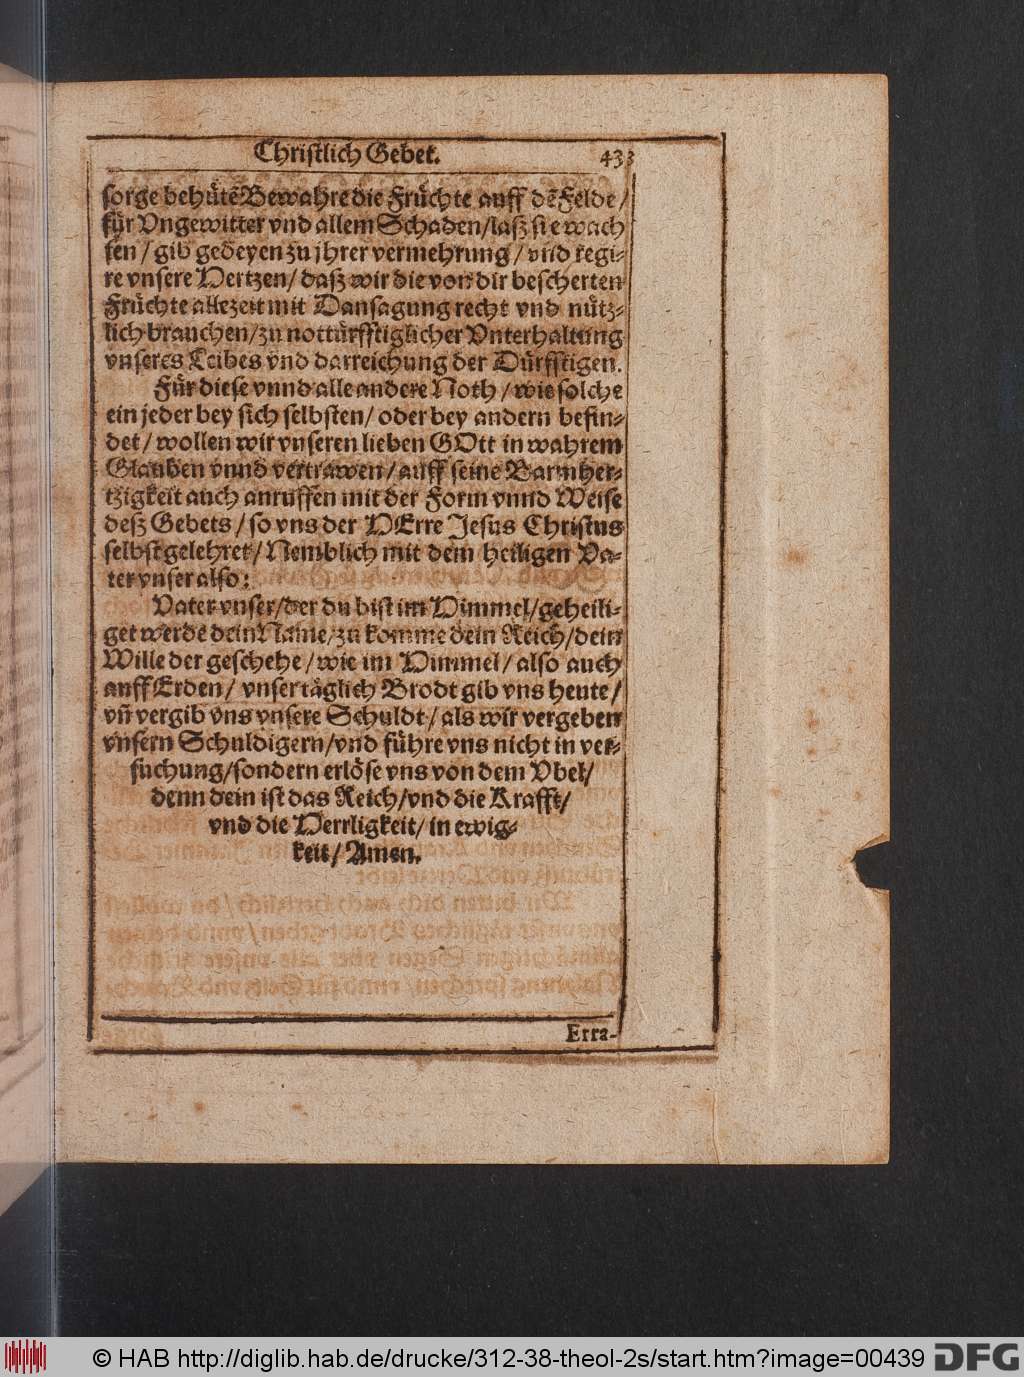 Christlich Gebet. 433
sorge behütē Bewahre die Früchte auff dē Felde /
für Vngewitter vnd allem Schaden/laß sie wach
sen / gib gedeyen zu jhrer vermehrung / vnd regi-
re vnsere Hertzen/ daß wir die von dir bescherten
Früchte allezeit mit Dansagung recht vnd nütz-
lich brauchen/zu notturfftiglicher Vnterhaltung
vnseres Leibes vnd darreichung der Dürfftigen.
Für diese vnnd alle andere Noth / wie solche
ein jeder bey sich selbsten/ oder bey andern befin-
det / wollen wir vnseren lieben GOtt in wahrem
Glauben vnnd vertrawen / auff seine Barmher-
tzigkeit auch anruffen mit der Form vnnd Weise
deß Gebets / so vns der HErre Jesus Christus
selbst gelehret / Nemblich mit dem heiligen Va-
ter vnser also:
Vater vnser/der du bist im Himmel/geheili-
get werde dein Name/zu komme dein Reich/dein
Wille der geschehe / wie im Himmel / also auch
auff Erden / vnser täglich Brodt gib vns heute /
vñ vergib vns vnsere Schuldt / als wir vergeben
vnsern Schuldigern/vnd führe vns nicht in ver-
suchung/sondern erlöse vns von dem Vbel/
denn dein ist das Reich/vnd die Krafft/
vnd die Herrligkeit/ in ewig-
keit / Amen.
Erra-
© HAB http://diglib.hab.de/drucke/312-38-theol-2s/start.htm?image=00439 DFG